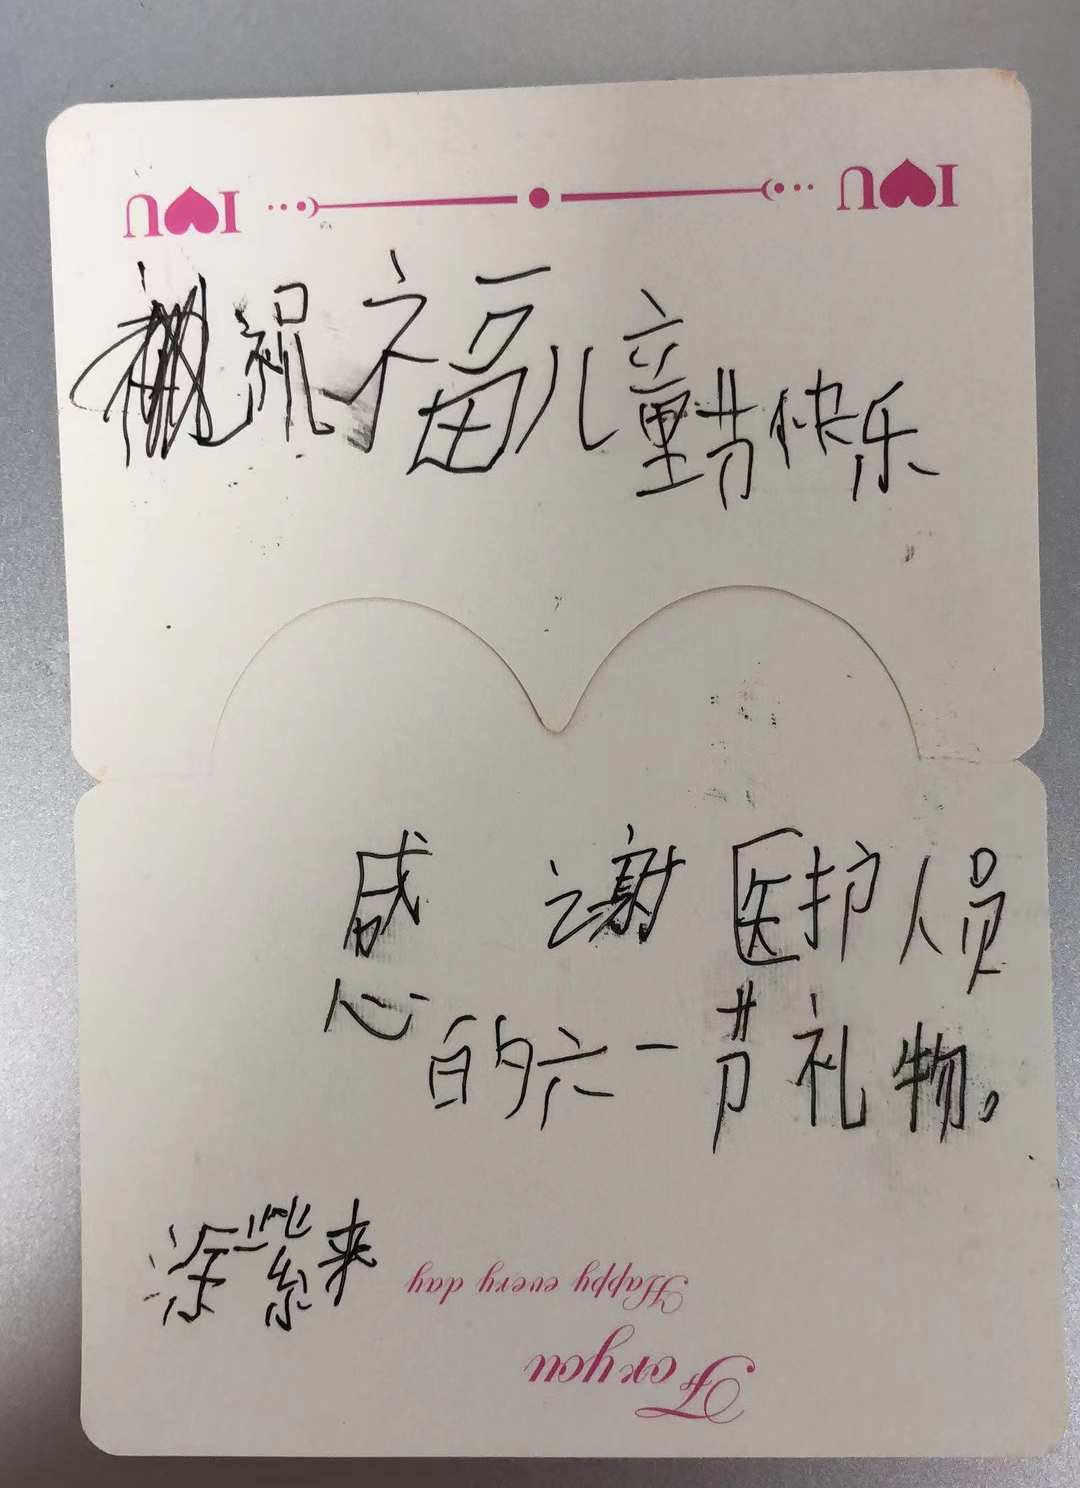 I♥U I♥U
祝福儿童节快乐
感谢医护人员
的六一节礼物。
涂紫来
Happy every day
For you